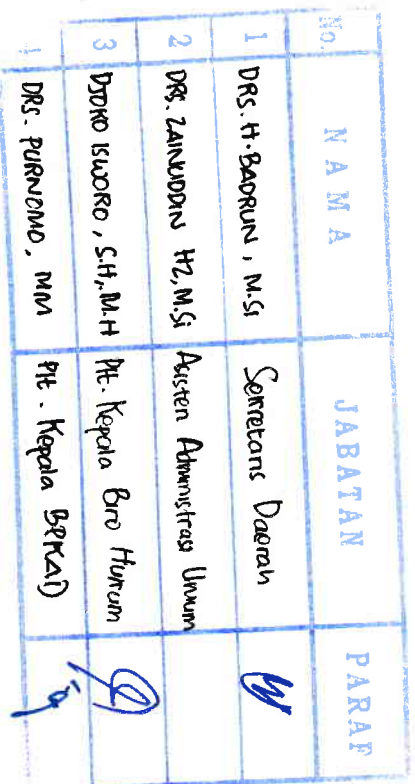 No. NAMA JABATAN PARAF
1 DRS. H. BADRUN, M.Si Sekretaris Daerah
2 DRS. ZAINUDDIN HZ, M.Si Asisten Administrasi Umum
3 DJOKO ISWORO, S.H, M.H Plt. Kepala Biro Hukum
4 DRS. PURNOMO, MM Plt. Kepala BPKAD